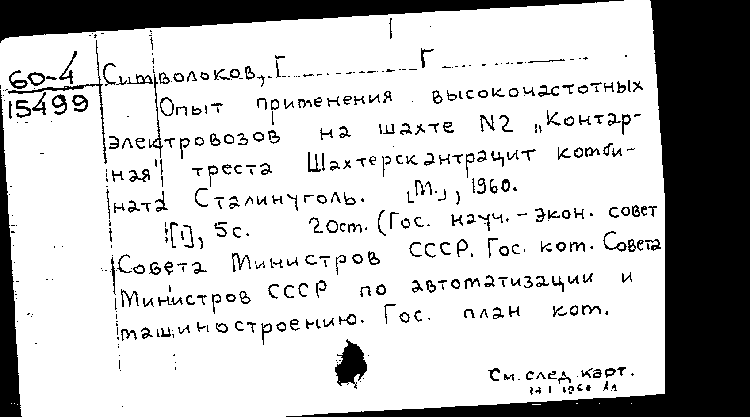 60-4
15499
Ситволоков, Г Г
Опыт применения высокочастотных
электровозов на шахте N2 „Контар-
ная" треста Шахтерскантрацит комби-
ната Сталинуголь. [М.], 1960.
[1], 5 с. 20 cm. (Гос. науч.-экон. совет
Совета Министров СССР. Гос. ком. Совета
Министров СССР по автоматизации и
машиностроению. Гос. план ком.
См. след. карт.